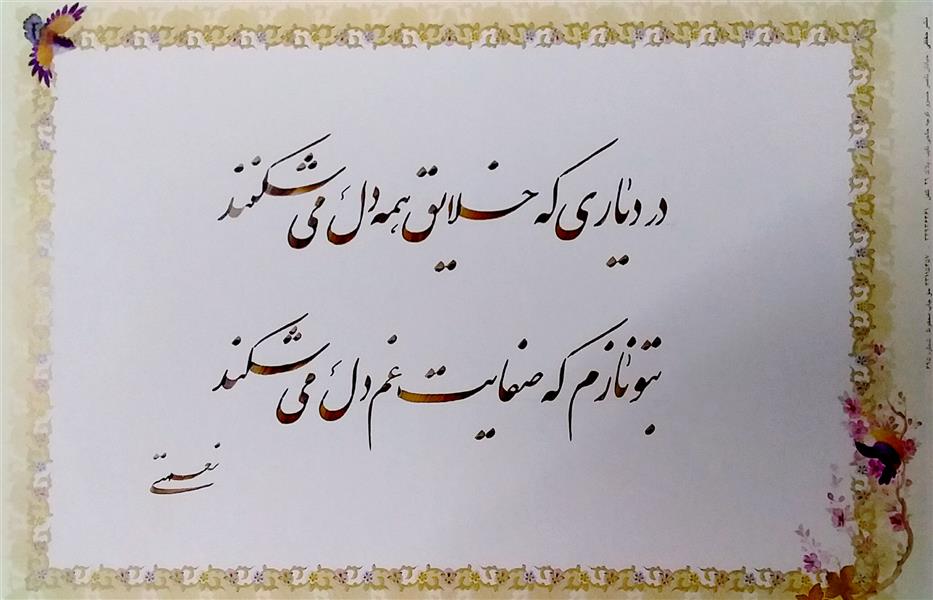 در دیاری که خلایق همه دل می شکنند
بتو نازم که صفایت غم دل می شکند
نعمتی